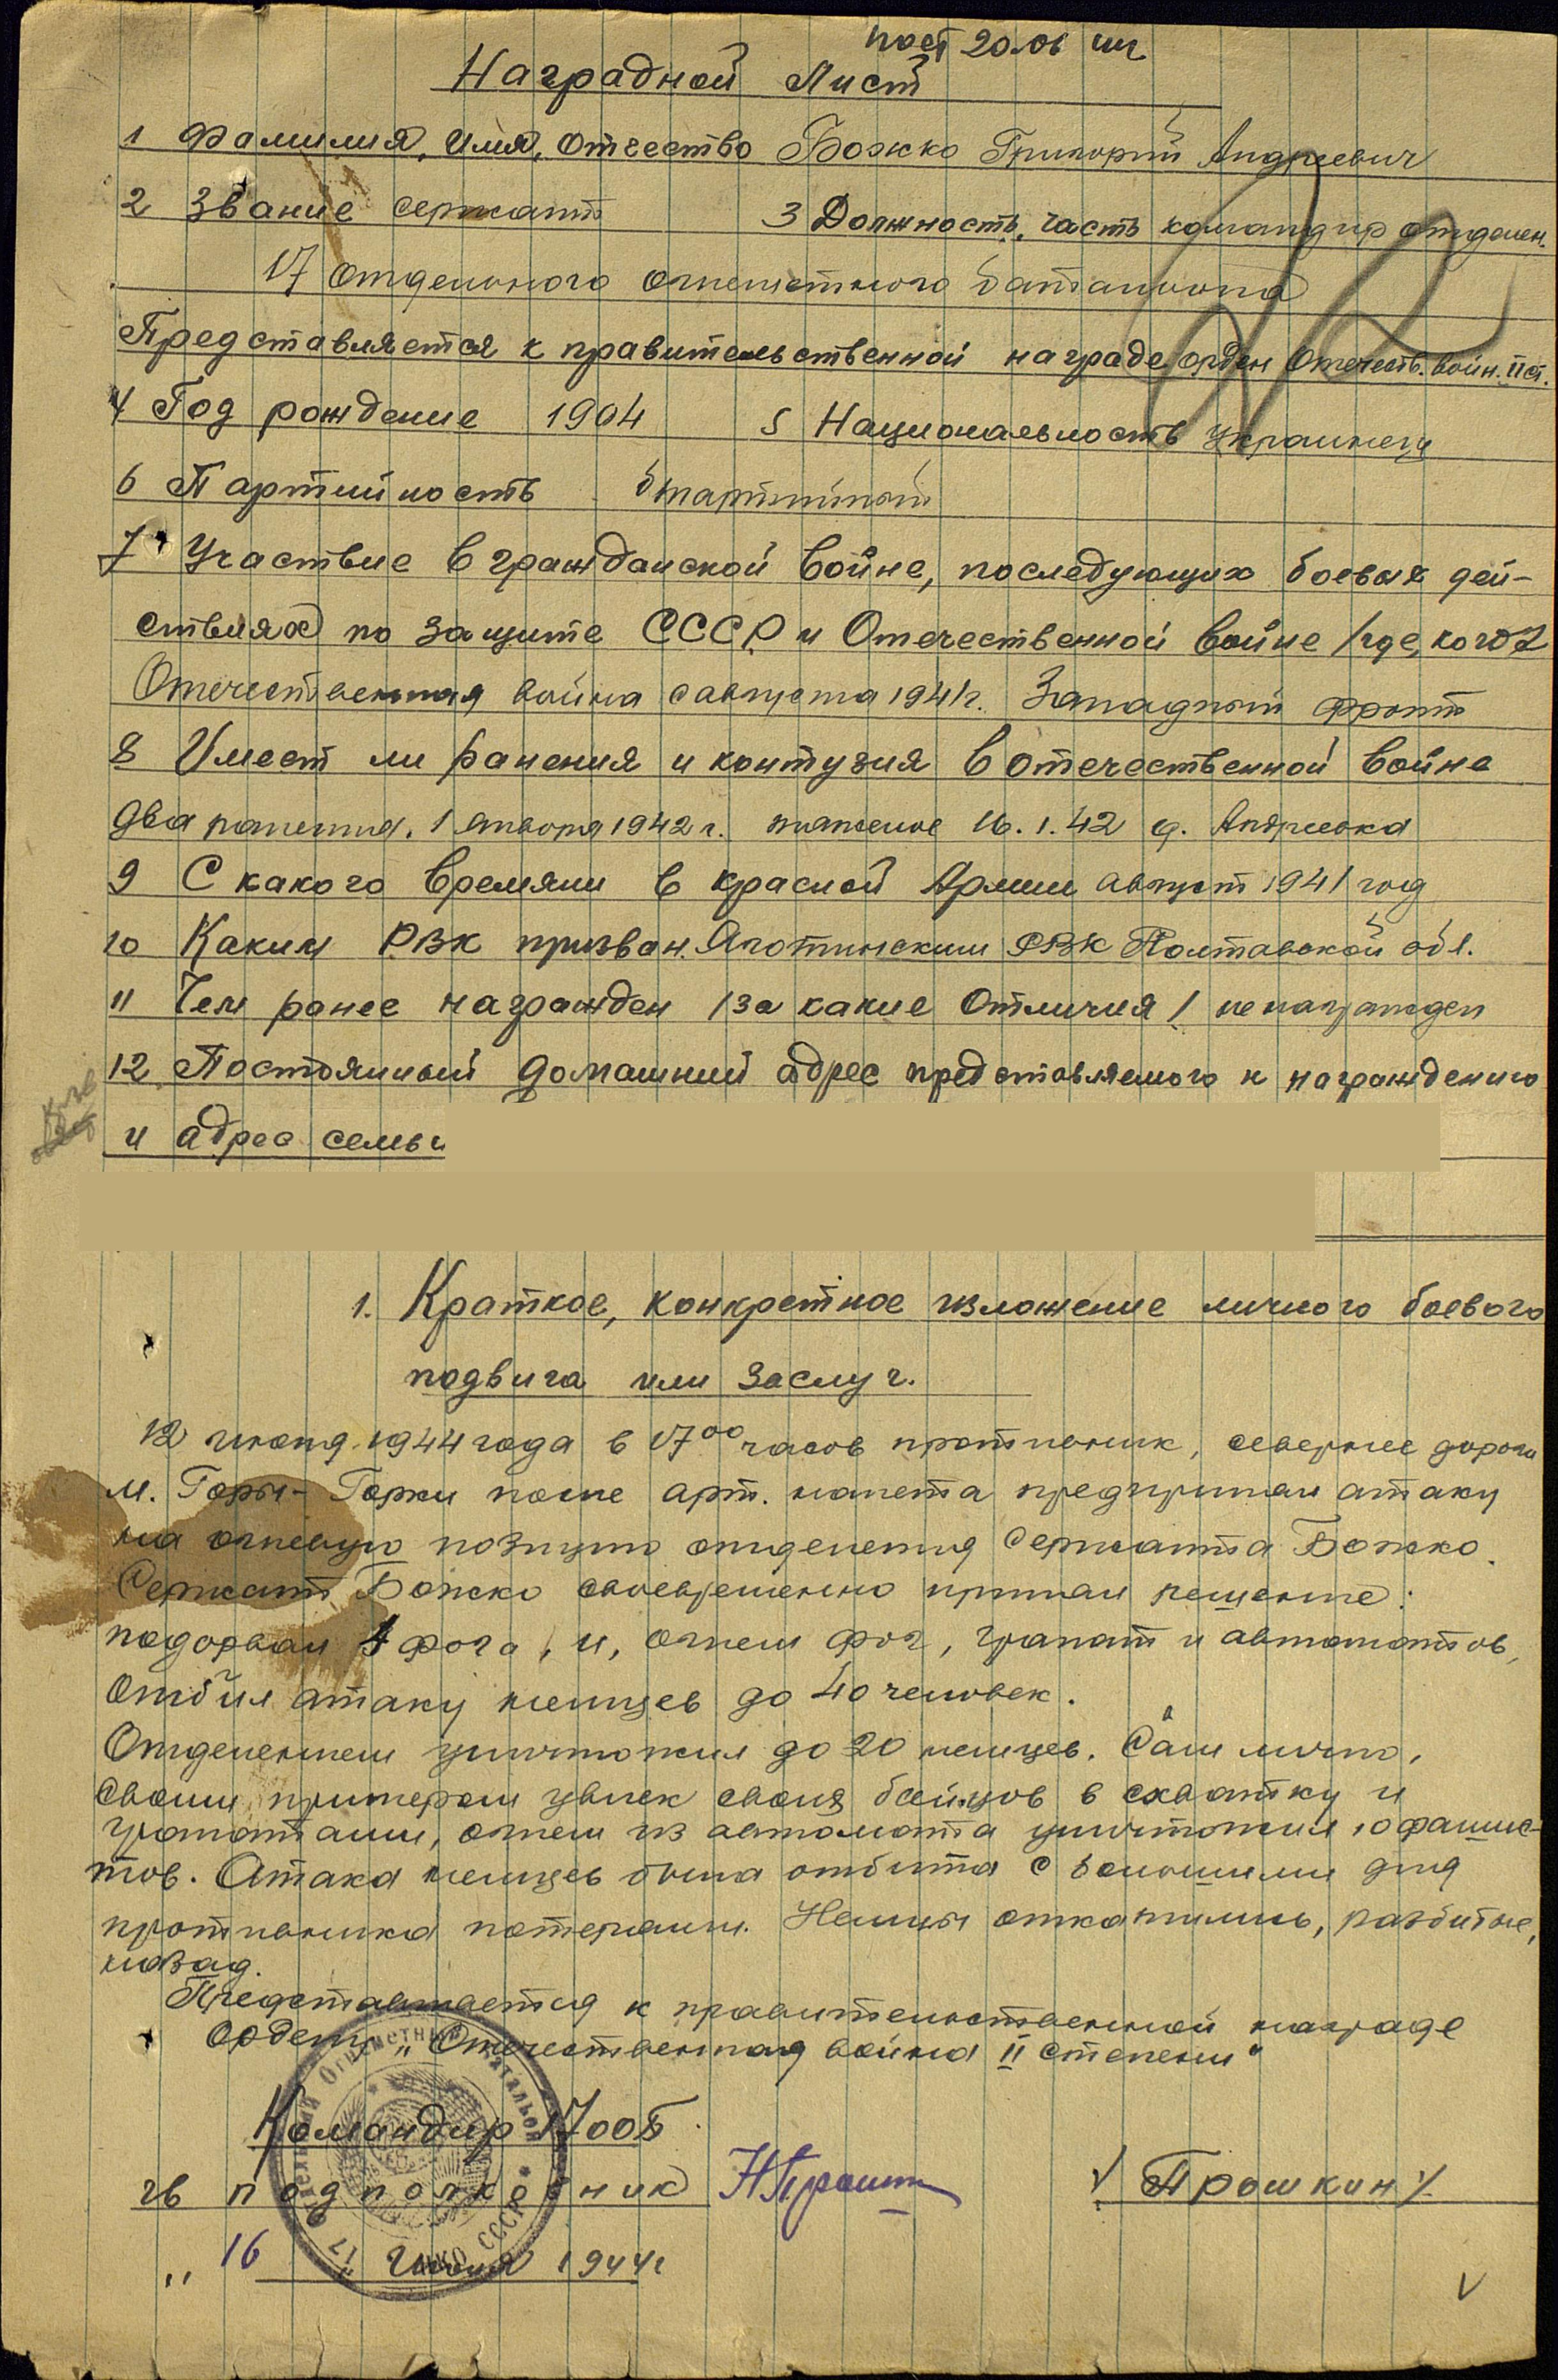 пост 20.06
Наградной Лист
1 Фамилия, Имя, Отчество Божко Григорий Андреевич
2 Звание сержант 3 Должность, часть командир отделен.
17 отдельного огнеметного батальона
Представляется к правительственной награде орден Отечеств. войн. II ст.
4 Год рождение 1904 5 Национальность украинец
6 Партийность беспартийный
7 Участвие в гражданской войне, последующих боевых дей-
ствиях по защите СССР и Отечественной войне /где, когда
Отечественная война с августа 1941 г. Западный фронт
8 Имеет ли ранения и контузия в отечественной войне
два ранения. 1 января 1942 г. тяжелое 16.1.42 д. Андреевка
9 С какого времяни в красной Армии август 1941 год
10 Каким РВК призван. Яготинским РВК Полтавской обл.
11 Чем ранее награжден /за какие отличия/ не награжден
12 Постоянный домашний адрес представляемого к награждению
и адрес семьи
1. Краткое, конкретное изложение личного боевого
подвига или заслуг.
12 июня 1944 года в 17⁰⁰ часов противник, севернее дороги
м. Горы-Горки после арт. налета предпринял атаку
на огневую позицию отделения сержанта Божко.
Сержант Божко своевременно принял решение:
подорвал 4 фога, и, огнем фог, гранат и автоматов,
отбил атаку немцев до 40 человек.
Отделением уничтожил до 20 немцев. Сам лично,
своим примером увлек своих бойцов в схватку и
гранатами, огнем из автомата уничтожил 10 фашис-
тов. Атака немцев была отбита с большими для
противника потерями. Немцы откатились, разбитые,
назад.
Представляется к правительственной награде
Ордену „Отечественная война II степени"
Командир 17 ООБ
гв подполковник Н Прошкин / Прошкин /
„ 16 " Июня 1944 г
Отдельный Огнеметный Батальон * НКО СССР * 17